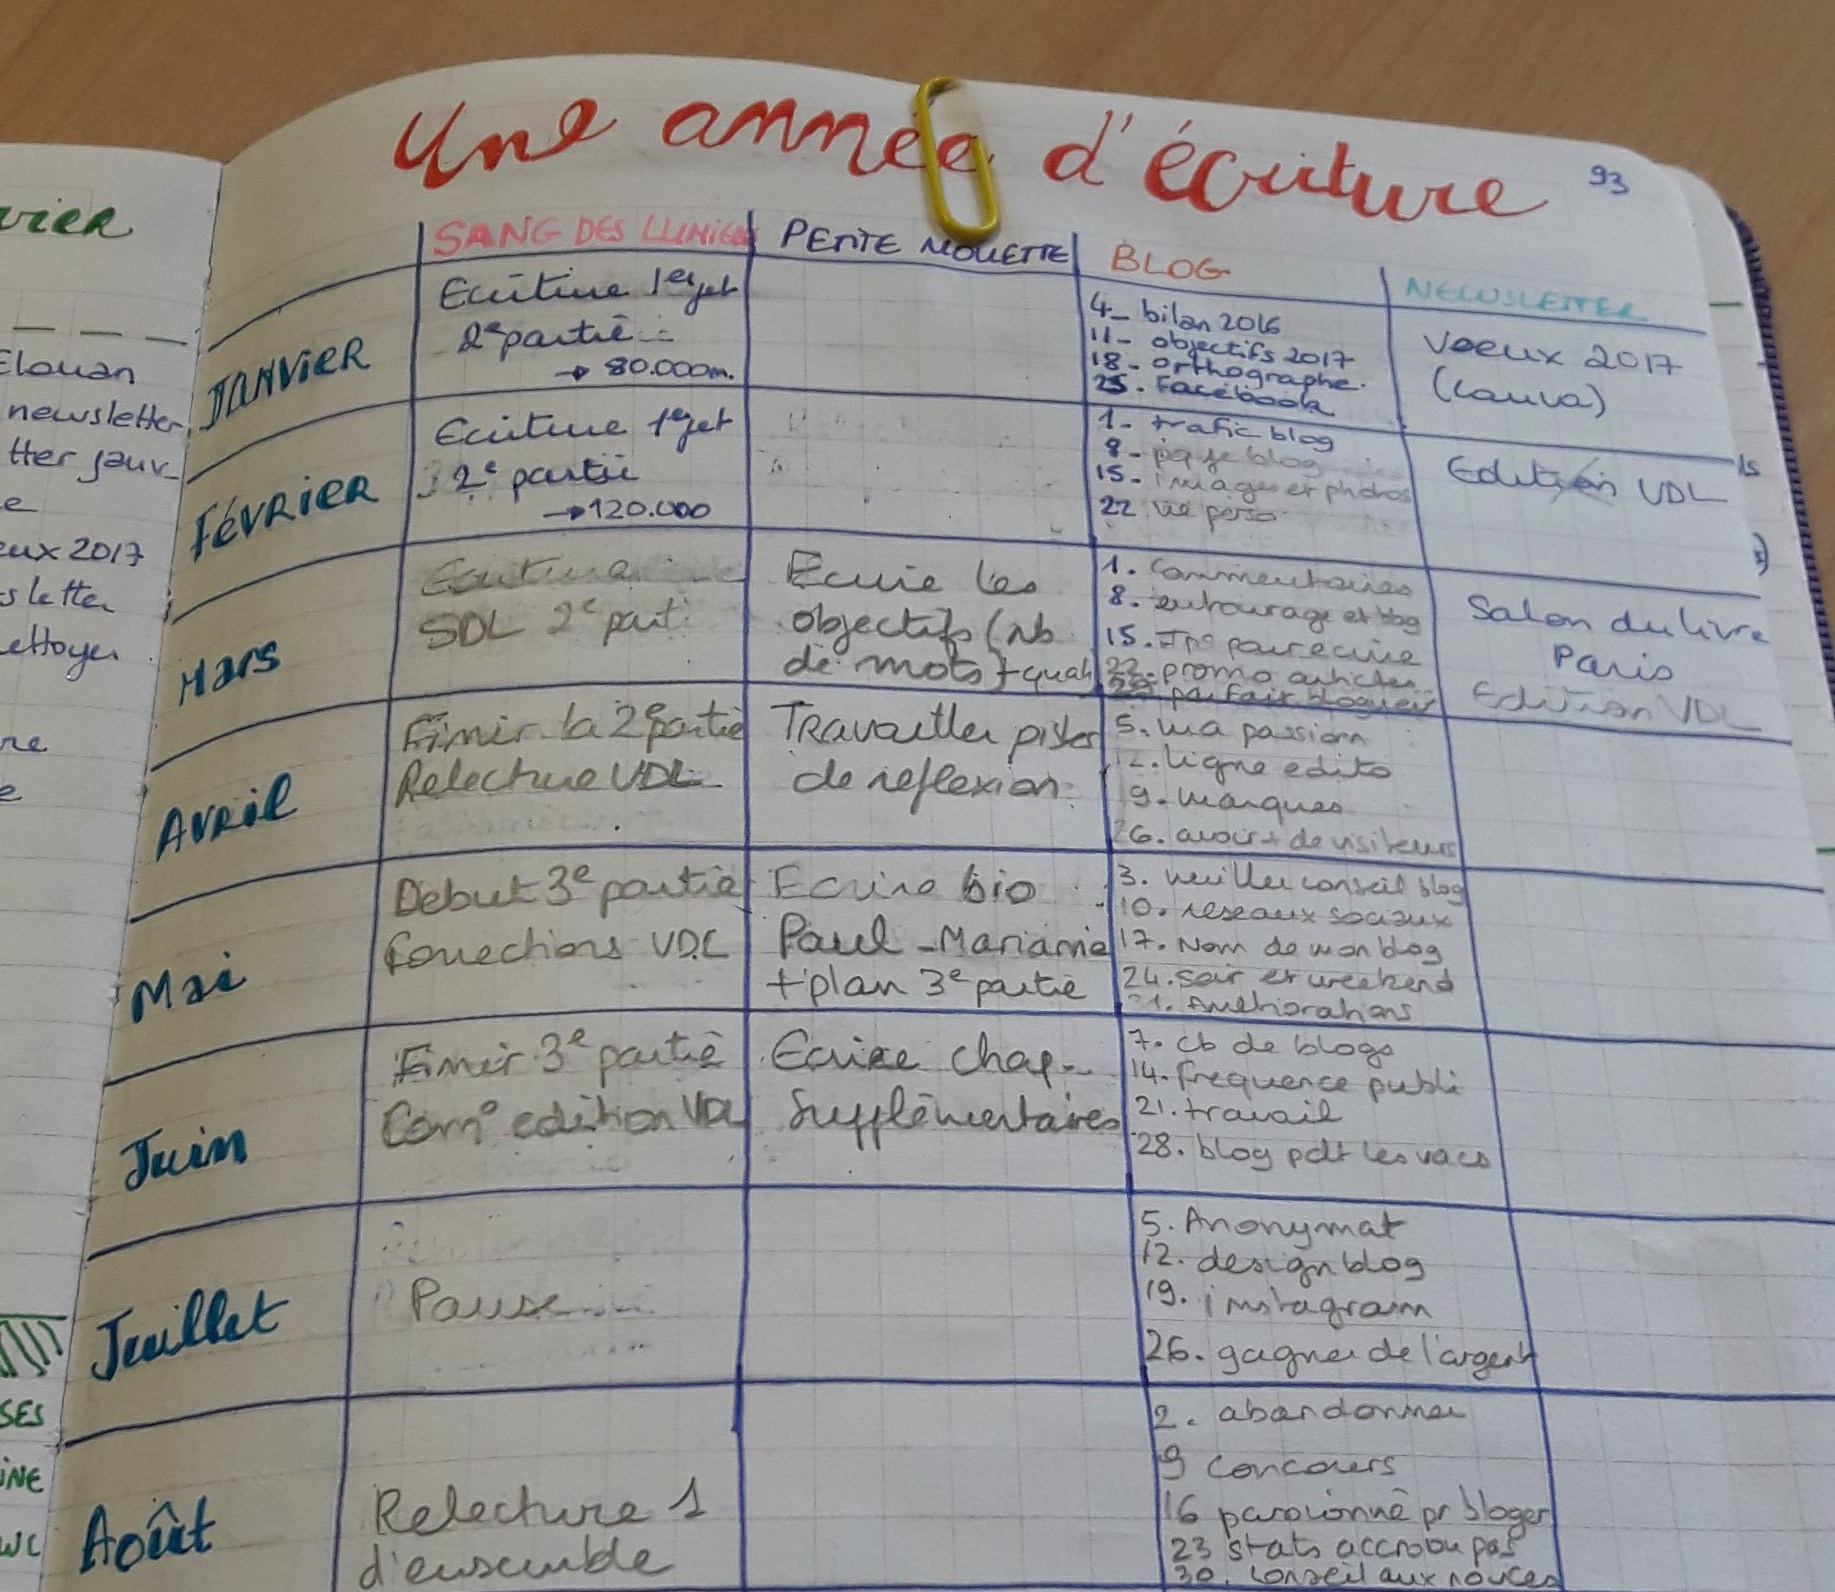 Une année d'écriture
93
SANG DES LUMIÈR
PETITE MOUETTE
BLOG
NEWSLETTER
JANVIER
Ecriture 1er jet
2e partie
→ 80.000m.
4_ bilan 2016
11_ objectifs 2017
18_ orthographe.
25. Facebook
Voeux 2017
(Canva)
FÉVRIER
Ecriture 1er jet
2e partie
→120.000
1. trafic blog
8_ page blog
15. images et photos
22 vie perso
Edition VDL
Mars
Ecriture
SDL 2e parti
Ecrire les
objectifs (nb
de mots) + quali
1. Commentaires
8. entourage et blog
15. pour ecrire
22. promo articles
parfait blogueur
Salon du livre
Paris
Edition VDL
Avril
Finir la 2e partie
Relecture VDL
Travailler pistes
de reflexion
5. ma passion
12. ligne edito
9. marques
26. avoir + de visiteurs
Mai
Debut 3e partie
Corrections VDL
Ecrire bio
Paul - Marianne
+ plan 3e partie
3. meilleur conseil blog
10. reseaux sociaux
17. Nom de mon blog
24. Soir et weekend
31. Améliorations
Juin
Finir 3e partie
Com° edition VDL
Ecrire chap.
Supplémentaires
7. cb de blogs
14. frequence publi
21. travail
28. blog pdt les vacs
Juillet
Pause
5. Anonymat
12. design blog
19. instagram
26. gagner de l'argent
Août
Relecture 1
d'ensemble
2. abandonner
9 concours
16 passionné pr bloger
23 stats accro ou pas
30. conseil aux novices
vier
Elouan
newsletter
tter sauv_
e
eux 2017
sletter
ettoyer
re
e
SES
INE
WC
ls